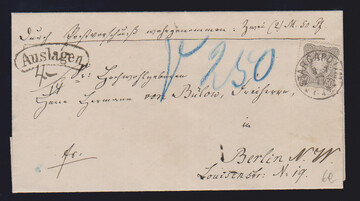 Durch Postvorschuß wahrgenommen: Zwei (2) M. 50 Pf.
Auslagen
250
STARGARD
Hochwohlgeboren
Herrn Hermann von Bülow,
in
Berlin N. W
Louisenstr: N. 19.
fr.